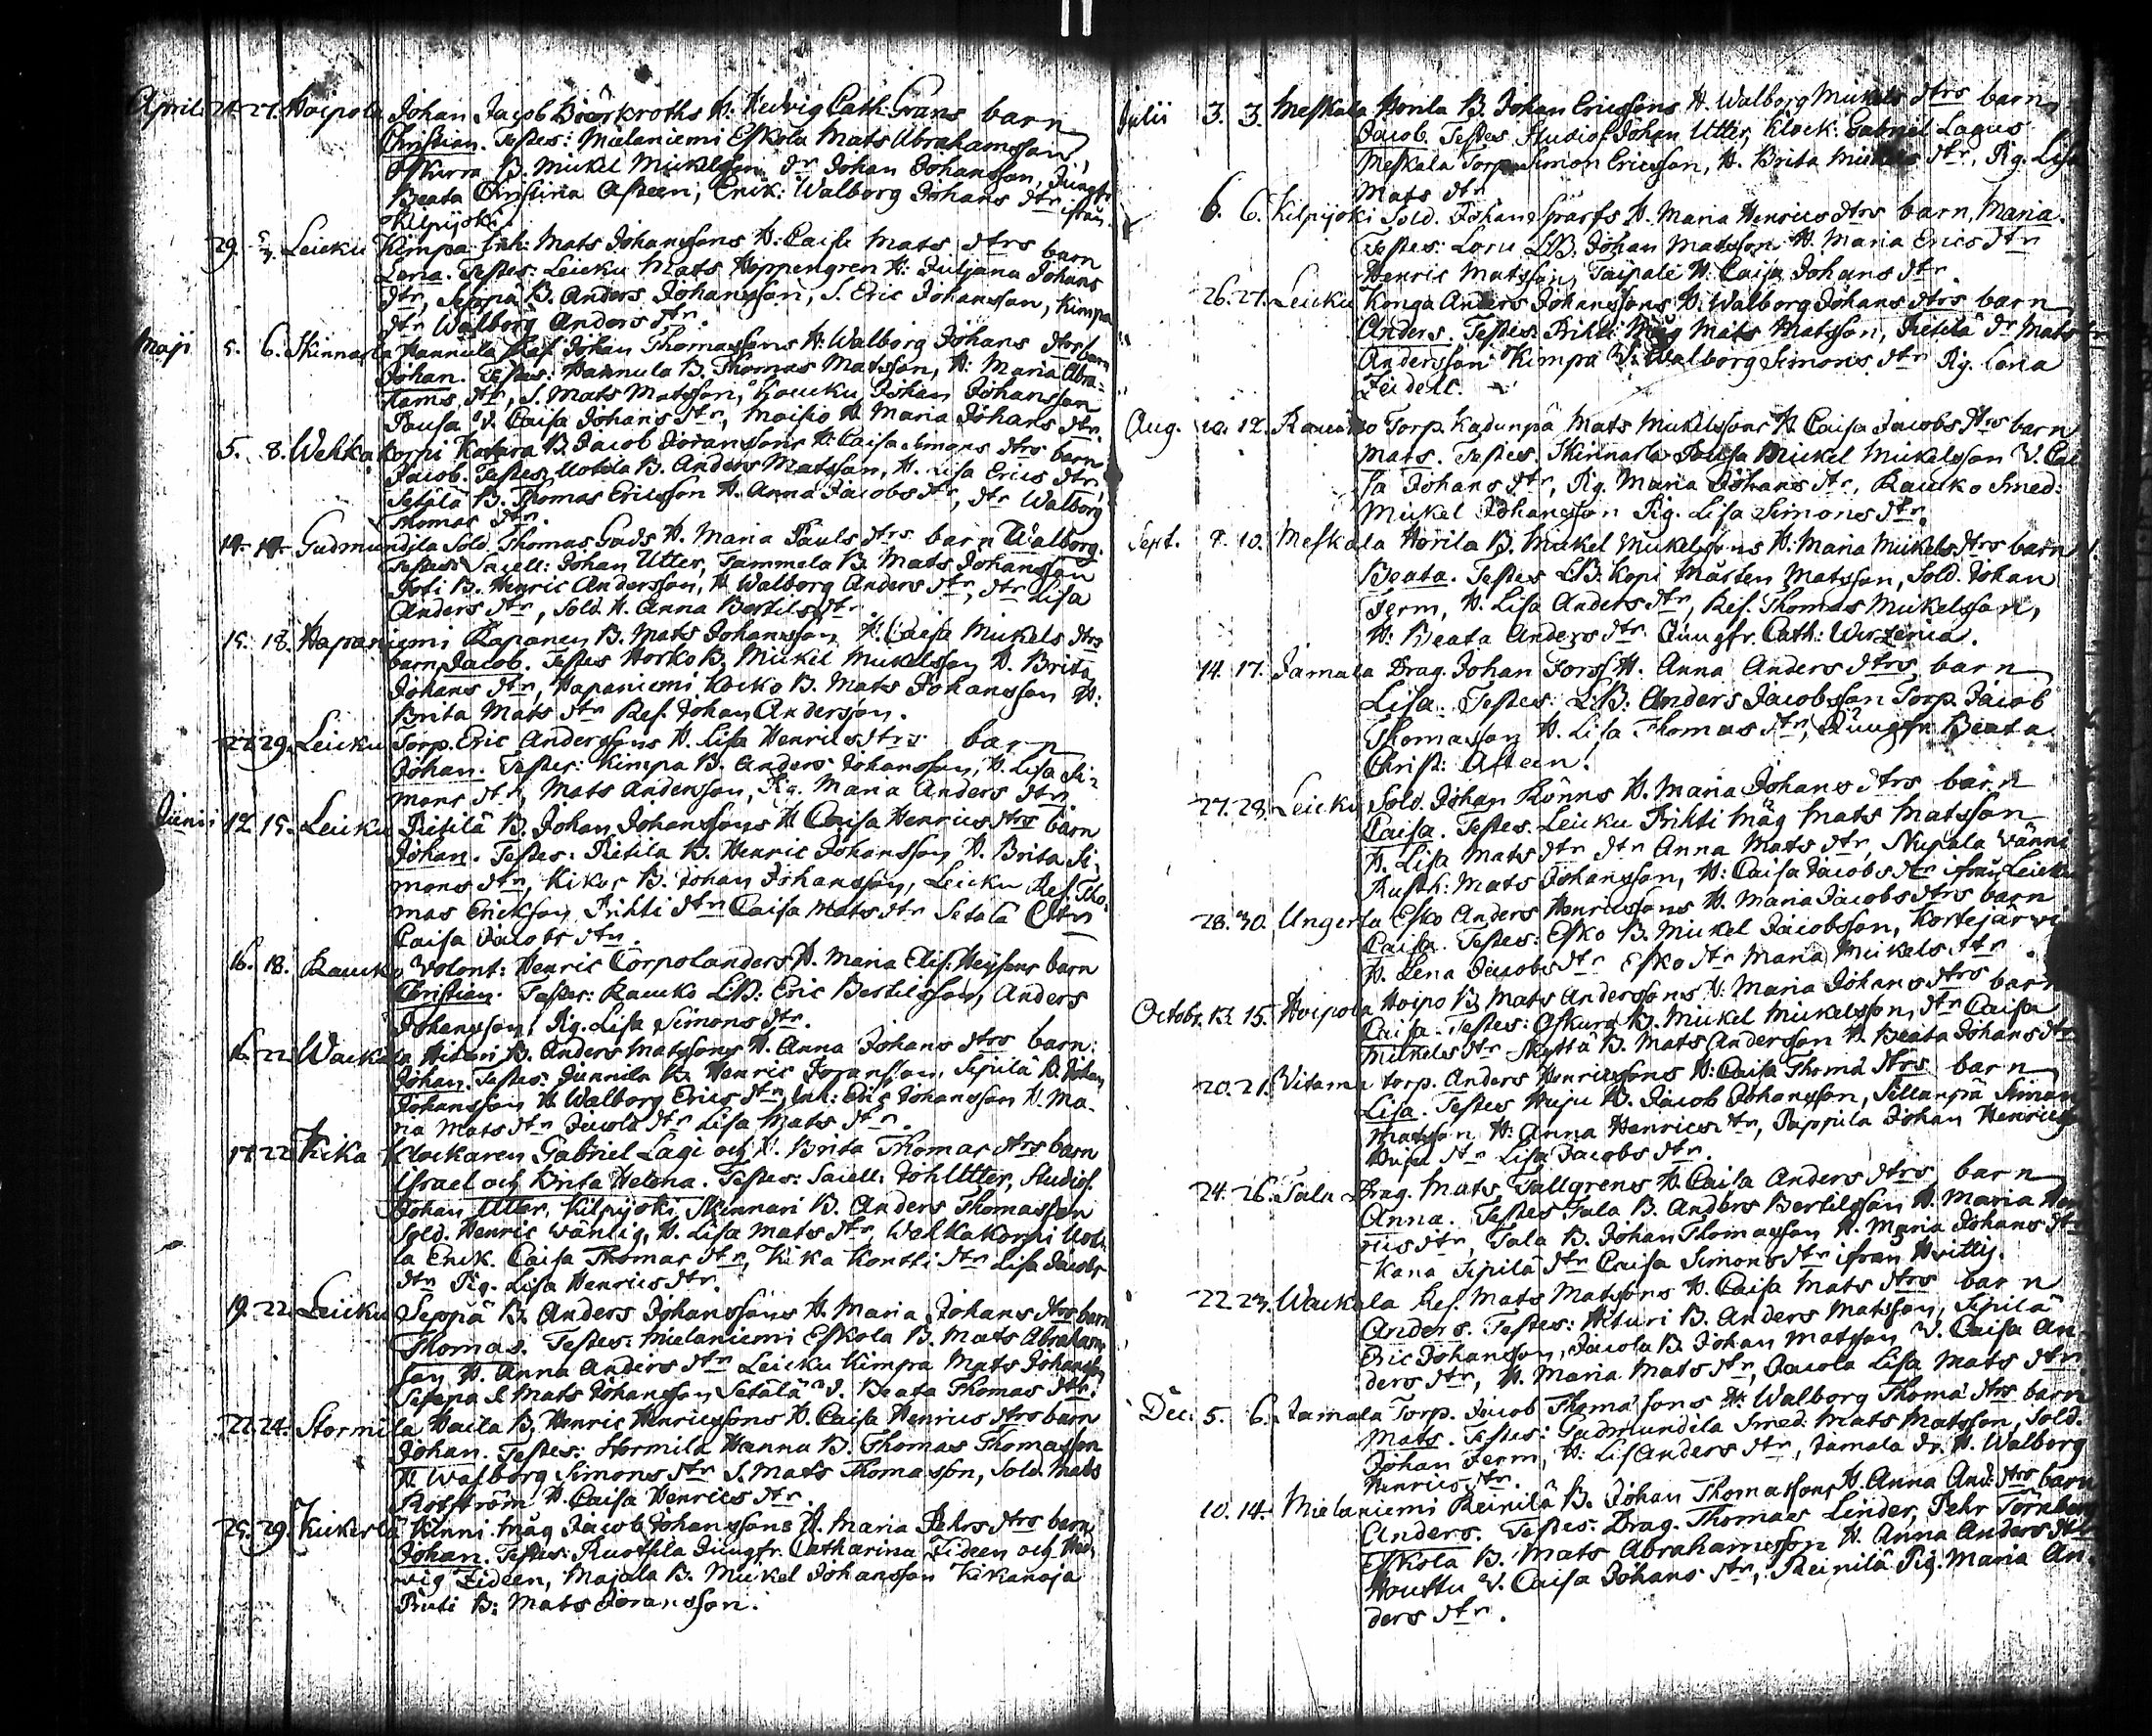 April. 21. 27. Hoipola Johan Jacob Biörkroths H. Hedvig Cath: Grans barn
Christian. Testes: Mielaniemi Eskola Mats Abrahamsson,
B. Mickel Mickelsson Dr Johan Johansson, Jungfr
Beata Christina Asteen, Enk: Walborg Johans dtr ifrån
Kilpijoki.
29. Leieku Kimpa Inh: Mats Johanssons H: Caisa Mats dtrs barn
Lena. Testes: Leieku Mats Heppengren H: Juljana Johans
dtr, Seppä B. Anders Johansson, S. Eric Johansson, Kimpa
dtr Walborg Anders dtr.
Maji 5. 6. Skinnarla Hannula Johan Thomassons H: Walborg Johans dtrs barn
Johan. Testes: Hannula B. Thomas Matsson, H: Maria Abra-
hams dtr, S. Mats Matsson, Johan Johansson
Pausa V. Caisa Johans dtr, Maisio H. Maria Johans dtr.
5. 8. Wehkakorpi Katara B. Jacob Joranssons H: Caisa Simons dtrs barn
Jacob. Testes: Uotila B. Anders Matsson, H. Lisa Erics dtr,
Setälä B. Thomas Ericsson H. Anna Jacobs dtr, dtr Walborg
Thomas dtr.
14. 14. Gudmundila Sold. Thomas Gads H. Maria Pauls dtrs barn Walborg.
Testes: Johan Utter, Tammela B. Mats Johansson
B. Henric Andersson, H Walborg Anders dtr, dtr Lisa
Anders dtr, Sold. H. Anna Bertils dtr.
15. 18. Hapaniemi Rapanen B. Mats Johansson, H. Caisa Mickels dtrs
barn Jacob. Testes Horko B. Mickel Mickelsson H. Brita
Johans dtr, Hapaniemi Kocko B. Mats Johansson H:
Brita Mats dtr Ref. Johan Andersson.
27. 29. Leieku Torp. Eric Anderssons H. Lisa Henrics dtrs barn
Johan. Testes: Kimpa B. Anders Johansson, H. Lisa Si-
mons dtr, Mats Andersson, Pig. Maria Anders dtr.
Junii 12. 15. Leieku Pietilä B. Johan Johanssons H Caisa Henrics dtrs barn
Johan. Testes: Pietila B. Henric Johansson H. Brita Si-
mons dtr, Kikos B. Johan Johansson, Leieku Ref. Tho-
mas Ericksson Prihti dtr Caisa Mats dtr Setälä Dtr
Caisa Jacobs dtr.
16. 18. Raucko Volont: Henric Corpolanders H. Maria Elis: barn
Christian. Testes: Raucko LB: Eric Bertilsson, Anders
Johansson, Pig. Lisa Simons dtr.
16. 22. Wackala Hituri B. Anders Matssons H. Anna Johans dtrs barn
Johan. Testes: Junnila B. Henric Joransson, Sipilä B. Johan
Johansson H Walborg Erics dtr, Inh: Eric Johansson H. Ma-
ria Mats dtr Jacola dtr Lisa Mats dtr.
17. 22. Kika Klockaren Gabriel Lagi och H. Brita Thomas dtrs barn
Israel och Brita Helena. Testes: Joh Utter, Studios.
Johan Utter, Kilpijoki Skinnari B. Anders Thomasson
Sold. Henric Wänlig, H. Lisa Mats dtr, Wehkakorpi Uoti-
la Enck. Caisa Thomas dtr, Kika Kontti dtr Lisa Jacobs
dtr Pig. Lisa Henrics dtr.
19. 22. Leieku Seppä B. Anders Johanssons H. Maria Johans dtrs barn
Thomas. Testes: Mielaniemi Eskola B. Mats Abrahams-
son H. Anna Anders dtr Leieku Kimpa Mats Johansson
S Mats Johansson Setälä V. Beata Thomas dtr.
22. 24. Stormila Waila B. Henric Henricssons H. Caisa Henrics dtrs barn
Johan. Testes: Stormila Hanna B. Thomas Thomasson
H. Walborg Simons dtr S. Mats Thomasson, Sold. Mats
Rotström H. Caisa Henrics dtr.
25. 29. Kickerlä Kinni Måg Jacob Johanssons H. Maria Pehrs dtrs barn
Johan. Testes: Ruottila Jungfr. Catharina Zideen och Hed-
vig Zideen, Majala B. Mickel Johansson Kikanoja
Prusi B: Mats Joransson.
Julii 3. 3. Meskala Horila B. Johan Ericssons H. Walborg Mickels dtrs barn
Jacob. Testes Studios. Johan Utter, Klock: Gabriel Lagus
Meskala Torp. Simon Ericsson, H. Brita Mickels dtr, Pig. Lisa
Mats dtr
6. 6. Kilpijoki Sold. Johan Sparfs H. Maria Henrics dtrs barn, Maria.
Testes: Loru LB. Johan Matsson H. Maria Erics dtr
Henric Matsson, Taipale H. Caisa Johans dtr.
26. 27. Leieku Konga Anders Johanssons H. Walborg Johans dtrs barn
Anders. Testes: Prihti Måg Mats Matsson, Pietilä dr Mats
Andersson Kimpa V: Walborg Simons dtr Pig. Lena
Zeidell.
Aug. 10. 12. Raucko Torp. Kadunpä Mats Mickelssons H. Caisa Jacobs dtrs barn
Mats. Testes. Skinnarla Pausa Mickel Mickelsson V. Cai-
sa Johans dtr, Pig. Maria Johans dtr, Raucko Smed:
Mickel Johansson Pig. Lisa Simons dtr.
Sept. 9. 10. Meskala Horila B. Mickel Mickelssons H. Maria Mickels dtrs barn
Beata. Testes LB. Kopi Mårten Matsson, Sold. Johan
Ferm, H. Lisa Anders dtr, Ref. Thomas Mickelsson,
H: Beata Anders dtr Jungfr. Cath: Wirzenia.
14. 17. Jamala Drag. Johan Fors H. Anna Anders dtrs barn
Lisa. Testes: LB: Anders Jacobsson Torp. Jacob
Thomasson H. Lisa Thomas dtr, Jungfr Beata
Christ: Asteen.
27. 28. Leieku Sold. Johan Rönns H. Maria Johans dtrs barn
Caisa. Testes. Leieku Prihti Måg Mats Matsson
H. Lisa Mats dtr dtr Anna Mats dtr, Nupala Vänni
Rusth: Mats Johansson, H: Caisa Jacobs dtr ifrån Leieku
28. 30. Ungerla Esko Anders Henricssons H. Maria Jacobs dtrs barn
Caisa. Testes: Esko B. Mickel Jacobsson, Kortejärvi
H. Lena Jacobs dtr Esko dtr Maria Mickels dtr.
Octobr. 13. 15. Hoipola Hoipo B. Mats Anderssons H. Maria Johans dtrs barn
Caisa. Testes: B. Mickel Mickelsson, dtr Caisa
Mickels dtr Skyttä B. Mats Andersson H. Beata Johans dtr
20. 21. Vitama torp. Anders Henricssons H: Caisa Thoma dtrs barn
Lisa. Testes Huju B. Jacob Johansson, Sillanpä Simon
Matsson H: Anna Henrics dtr, Pappila Johan Henricss
dtr Lisa Jacobs dtr.
24. 26. Sala Drag. Mats Tallgrens H. Caisa Anders dtrs barn
Anna. Testes Sala B. Anders Bertilsson H. Maria Hen-
rics dtr, Sala B. Johan Thomasson H. Maria Johans dtr
Kana Sipilä dtr Caisa Simons dtr ifrån Hvittis.
22. 23. Wackala Ref. Mats Matssons H. Caisa Mats dtrs barn
Anders. Testes: Hituri B. Anders Matsson, Sipilä
Eric Johansson, Jacola B. Johan Matsson V. Caisa An-
ders dtr, H. Maria Mats dtr, Jacola Lisa Mats dtr
Dec. 5. 6. Jamala Torp. Jacob Thomassons H. Walborg Thoma dtrs barn
Mats. Testes: Gudmundila Smed. Mats Matsson, Sold.
Johan Ferm, H: Lis Anders dtr, Jamala Dr. H. Walborg
Henrics dtr.
10. 14. Mielaniemi Reinilä B. Johan Thomassons H. Anna And: dtrs barn
Anders. Testes: Drag. Thomas Linder, Pehr Törnberg
Eskola B. Mats Abrahamsson H. Anna Anders dtr
Houttu V. Caisa Johans dtr, Reinilä Pig. Maria An-
ders dtr.